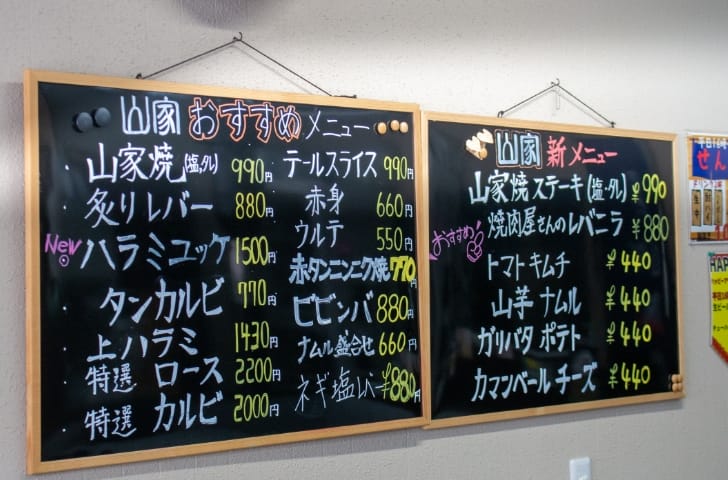 山家 おすすめ メニュー
山家焼(塩,タレ) 990円
炙りレバー 880円
New ハラミユッケ 1500円
タンカルビ 770円
上ハラミ 1430円
特選 ロース 2200円
特選 カルビ 2000円
テールスライス 990円
赤身 660円
ウルテ 550円
赤タンニンニク焼 770円
ビビンバ 880円
ナムル盛合せ 660円
ネギ塩レバー ¥880円
山家 新メニュー
山家焼ステーキ(塩・タレ) ¥990
おすすめ! 焼肉屋さんのレバニラ ¥880
トマトキムチ ¥440
山芋ナムル ¥440
ガリバタ ポテト ¥440
カマンベールチーズ ¥440
せん
HAP